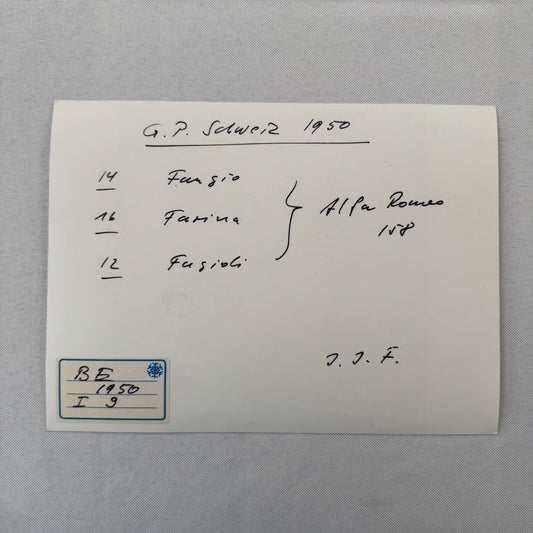 G. P. Schweiz 1950
14 Fangio
16 Farina
12 Fagioli
Alfa Romeo
158
J. J. F.
BE
1950
I 9